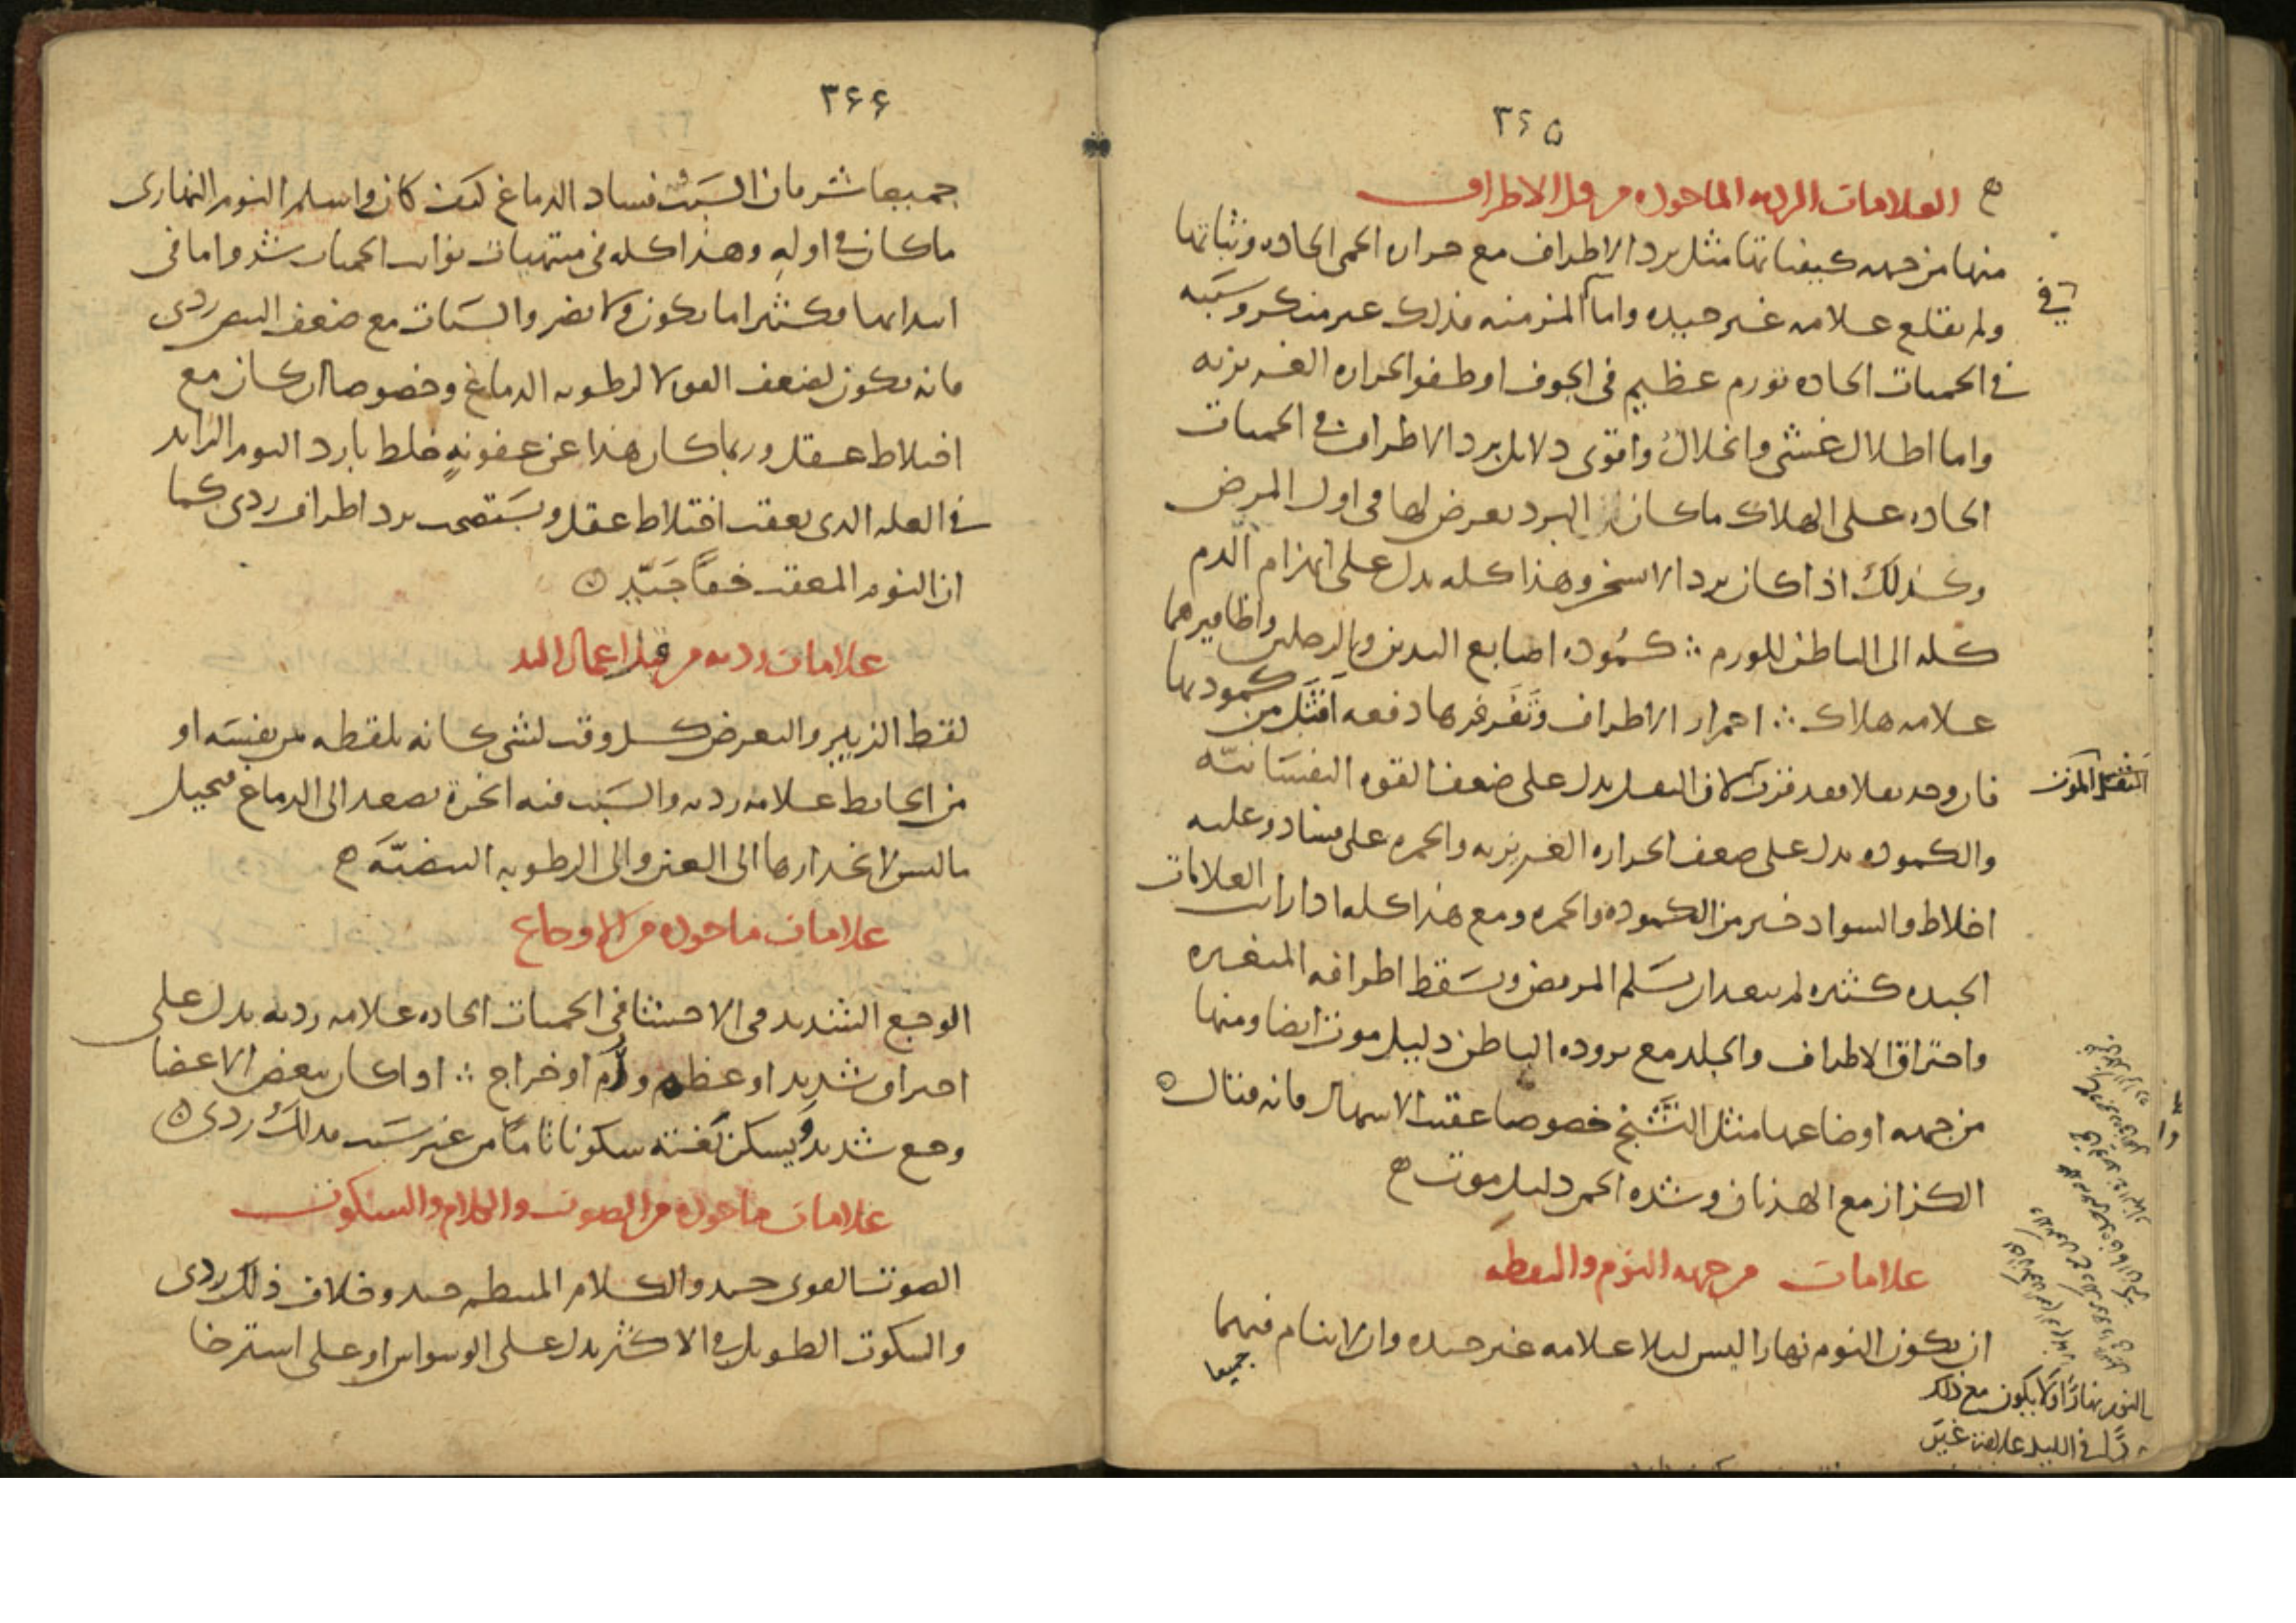 ٣٦٥
العلامات الرديه الماخوذه من قبل الاطراف
منها من جهه كيفياتها مثل برد الاطراف مع حراره الحمى الحاده وثباتها
ولم تقلع علامه غير جيده واما المزمنه فذلك غير منكر وسببه
في الحميات الحاده تورم عظيم في الجوف او طفو الحراره الغريزيه
واما اطلال غشي وانحلال واقوى دلايل برد الاطراف في الحميات
الحاده على الهلاك ما كان البرد يعرض لها في اول المرض
وكذلك اذا كان برد لا يسخن وهذا كله يدل على انهزام الدم
كله الى الباطن للورم ∴ كموده اصابع اليدين والرجلين واظافيرهما
علامه هلاك ∴ احمرار الاطراف وتفرفرها دفعه اقتل من كمودتها
فان وجد ثقلا فقد قرب لان الثقل يدل على ضعف القوه النفسانيه
والكموده يدل على ضعف الحراره الغريزيه والحمره على فساد وغلبه
اخلاط والسواد خير من الكموده والحمره ومع هذا كله اذا رايت العلامات
الجيده كثيره لم يبعد ان يسلم المريض ويسقط اطرافه المتغيره
واحتراق الاطراف والجلد مع بروده الباطن دليل موت ايضا ومنها
من جهه اوضاعها مثل التشنج خصوصا عقيب الاسهال فانه قتال
الكزاز مع الهذيان وشده الحمى دليل موت
علامات من جهه النوم واليقظه
ان يكون النوم نهارا ليس ليلا علامه غير جيده وان لا ينام فيهما
جميعا
في
الثقل الموت
النوم نهارًا ولا يكون مع ذلك
في الليل علامة غير
٣٦٦
جميعا شر فان السبب فساد الدماغ كيف كان واسلم النوم النهارى
ما كان في اوله وهذا كله في منتهيات نوايب الحميات شر واما في
ابتدائها فكثيرا ما يكون ولا يضر والسبات مع ضعف النبض ردى
فانه يكون لضعف القوه لا لرطوبه الدماغ وخصوصا ان كان مع
اختلاط عقل وربما كان هذا عن عفونةٍ خلط بارد النوم الزايد
في العله الذى يعقب اختلاط عقل ويستصحب برد اطراف ردى كما
ان النوم المعقب خفا جيّد
علامات رديه من قبل اعمال اليد
لقط الزيبر والتعرض كل وقت لشى كانه يلقطه من نفسه او
من الحايط علامه رديه والسبب فيه ابخرة تصعد الى الدماغ فيخيل
ما ليس لانحدارها الى العين والى الرطوبه البيضيّة
علامات ماخوذه من الاوجاع
الوجع الشديد في الاحشا في الحميات الحاده علامه رديه يدل على
احتراق شديد او عظم ورم او خراج ∴ اذا كان ببعض الاعضا
وجع شديد ويسكن بغتة سكونا تامًا من غير سبب فذلك ردى
علامات ماخوذه من الصوت والكلام والسكوت
الصوت القوى جيد والكلام المنتظم جيد وخلاف ذلك ردى
والسكوت الطويل في الاكثر يدل على الوسواس او على استرخا